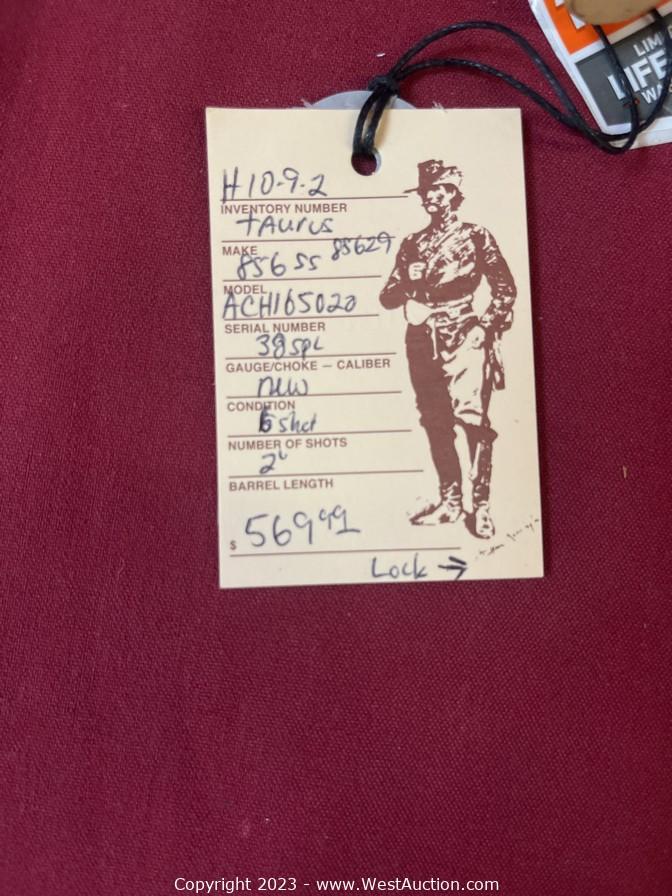 LIM
LIFE
WA
H10-9-2
INVENTORY NUMBER
TAurus
MAKE
856 SS 85629
MODEL
ACH165020
SERIAL NUMBER
38 spl
GAUGE/CHOKE — CALIBER
new
CONDITION
6 shot
NUMBER OF SHOTS
2"
BARREL LENGTH
$ 569.99
Lock →
Copyright 2023 - www.WestAuction.com